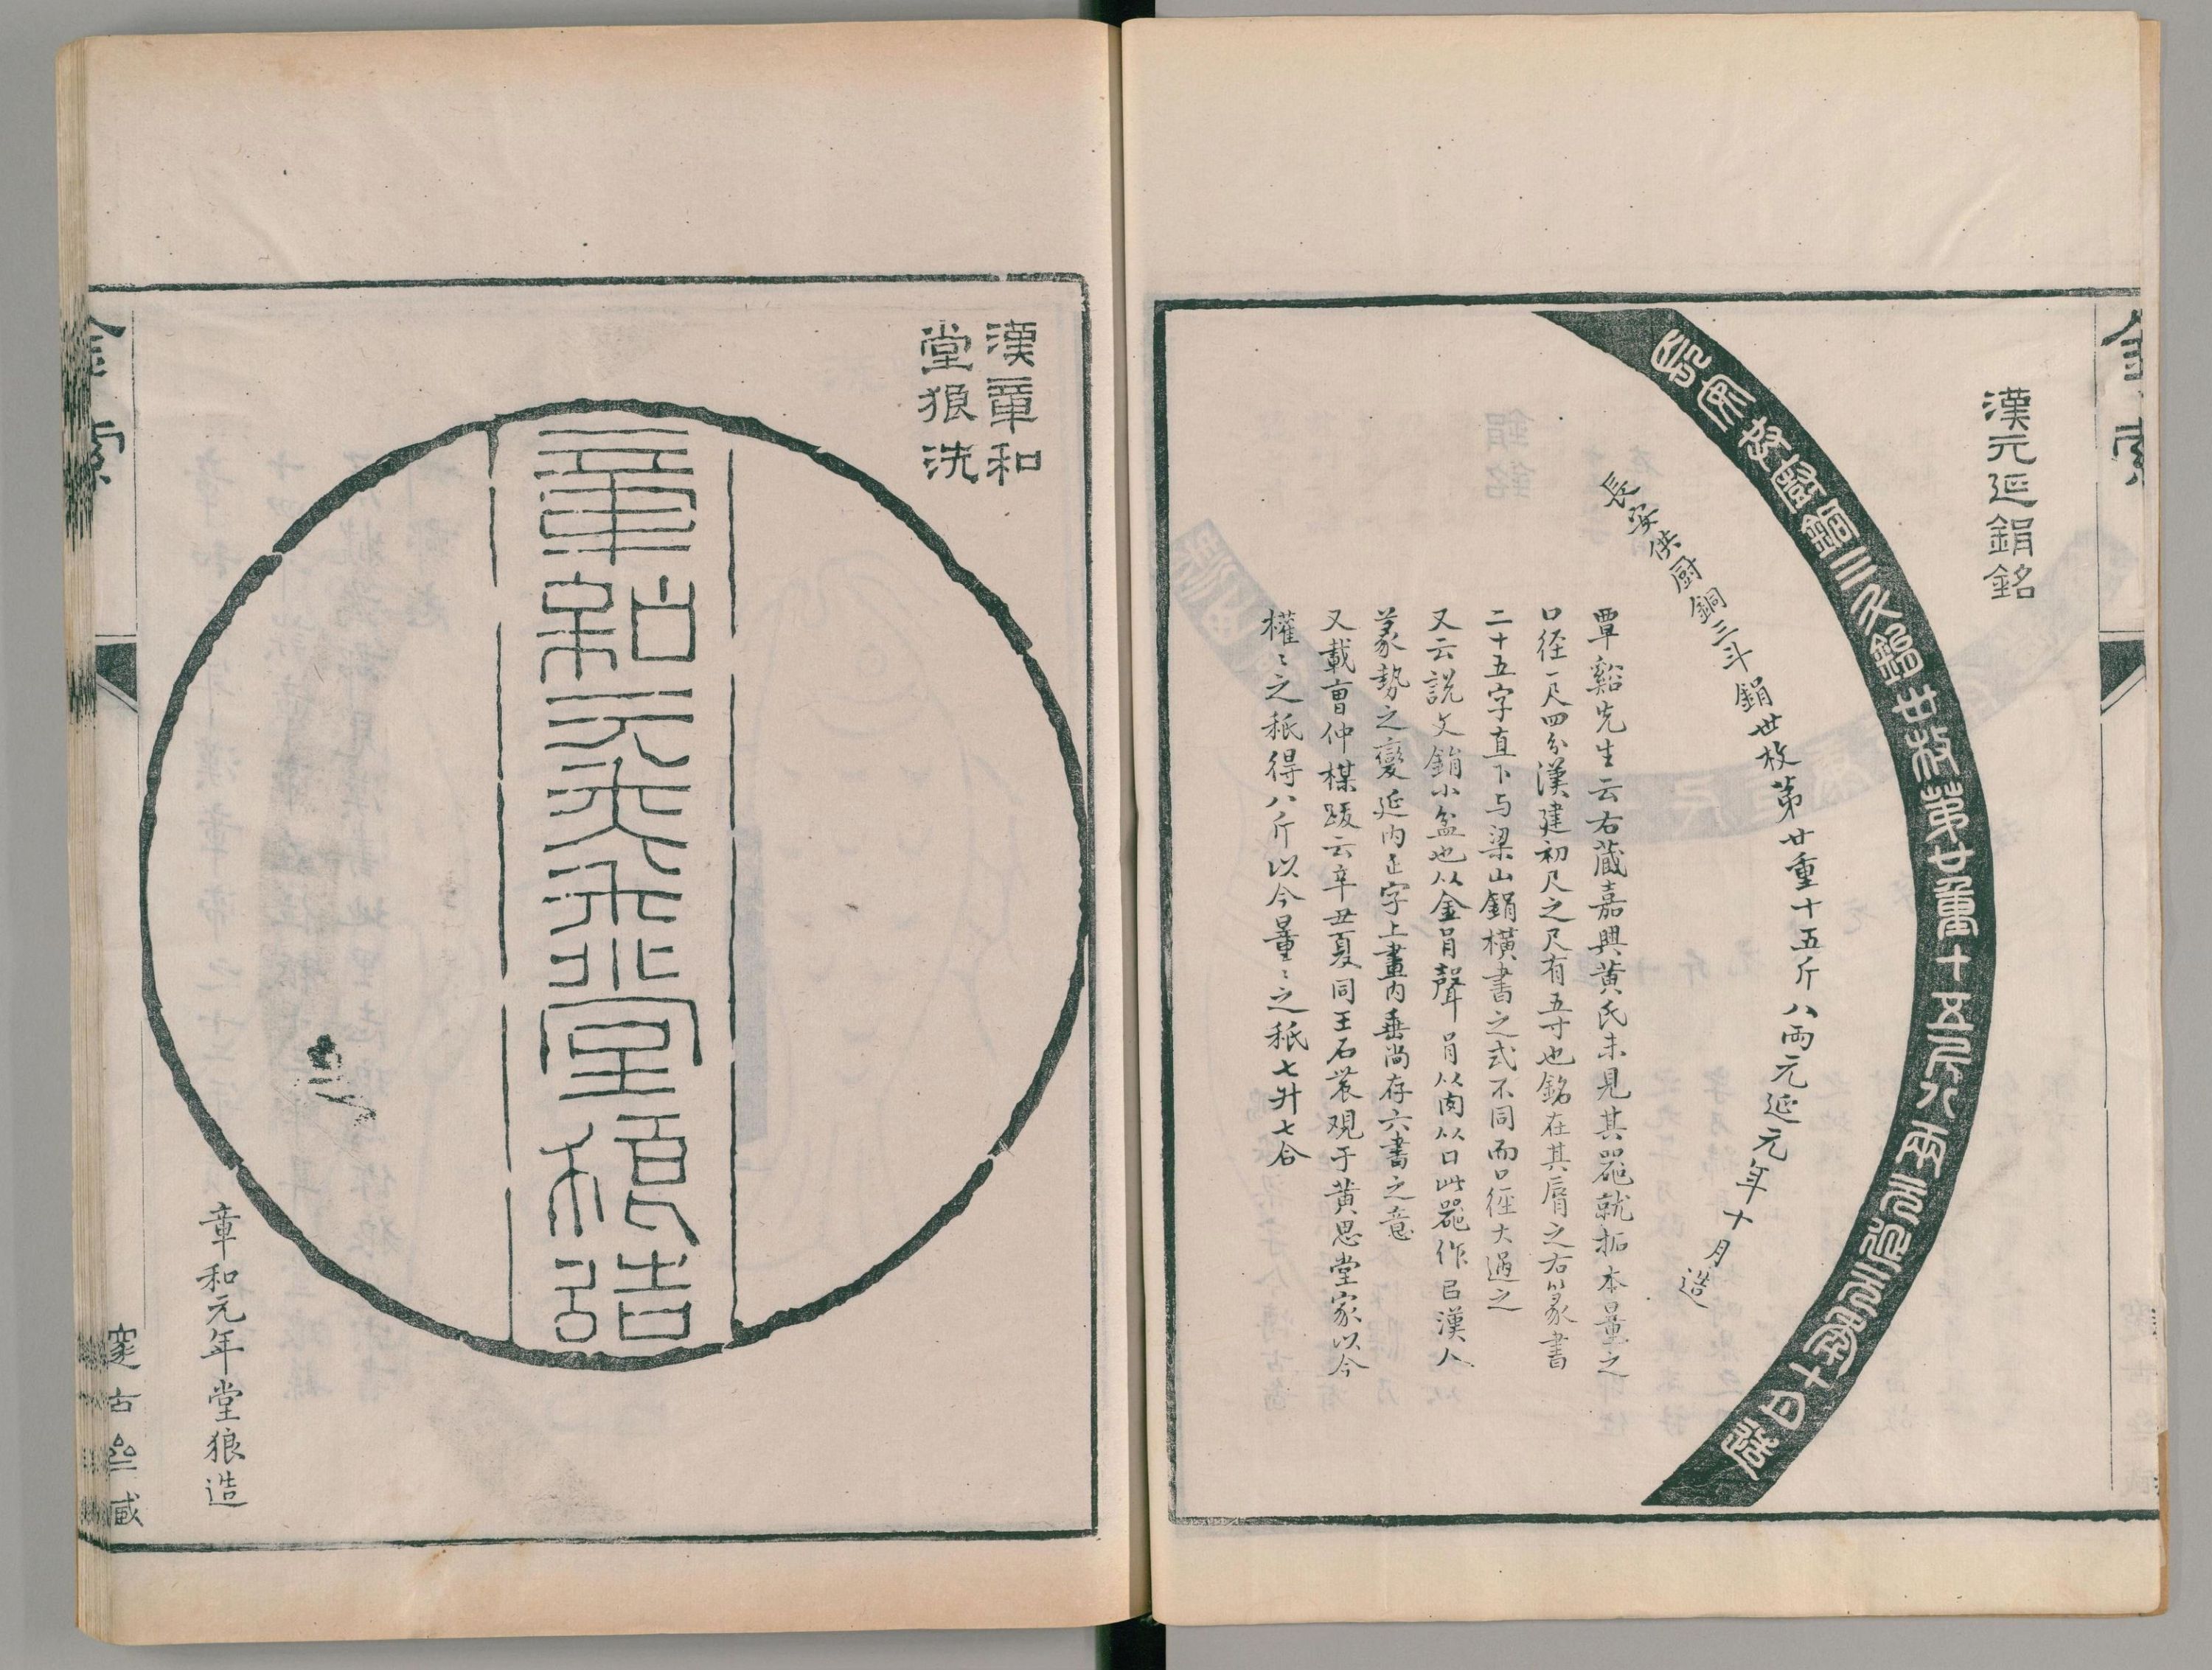 金索
漢元延鋗銘
長安供厨銅三斗鋗世枚第廿重十五斤八兩元延元年十月造
長安供厨銅三斗鋗世枚第廿重十五斤八両元延元年十月造
覃谿先生云右蔵嘉興黄氏未見其器就拓本量之
口徑一尺四分漢建初尺之尺有五寸也銘在其脣之右篆書
二十五字直下与梁山鋗橫書之式不同而口徑大過之
又云説文鋗小盆也从金肙聲肙从肉从口此器作㠯漢人
篆勢之變延内正字上畫内垂尚存六書之意
又載曹仲楳跋云辛丑夏同王石裳观于黄思堂家以今
權〻之秖得八斤以今量〻之秖七升七合
漢章和
堂狼洗
章和元年堂狼造
章和元年堂狼造
金索
邃古
藏